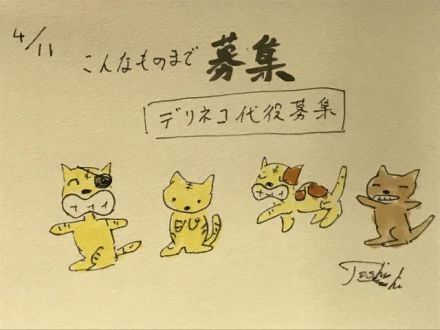 4/11
こんなものまで 募集
デリネコ代役募集
Toshi